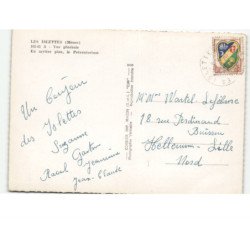 LES ISLETTES (Meuse)
Vue générale
En arrière plan, le Préventorium
Un Bonjour
des Islettes
Suzanne
Raoul Gaston
Jeannine
Jean-Claude
M. Mme Wartel Lefebvre
18, rue Ferdinand-
Buisson
Hellemmes-Lille
Nord